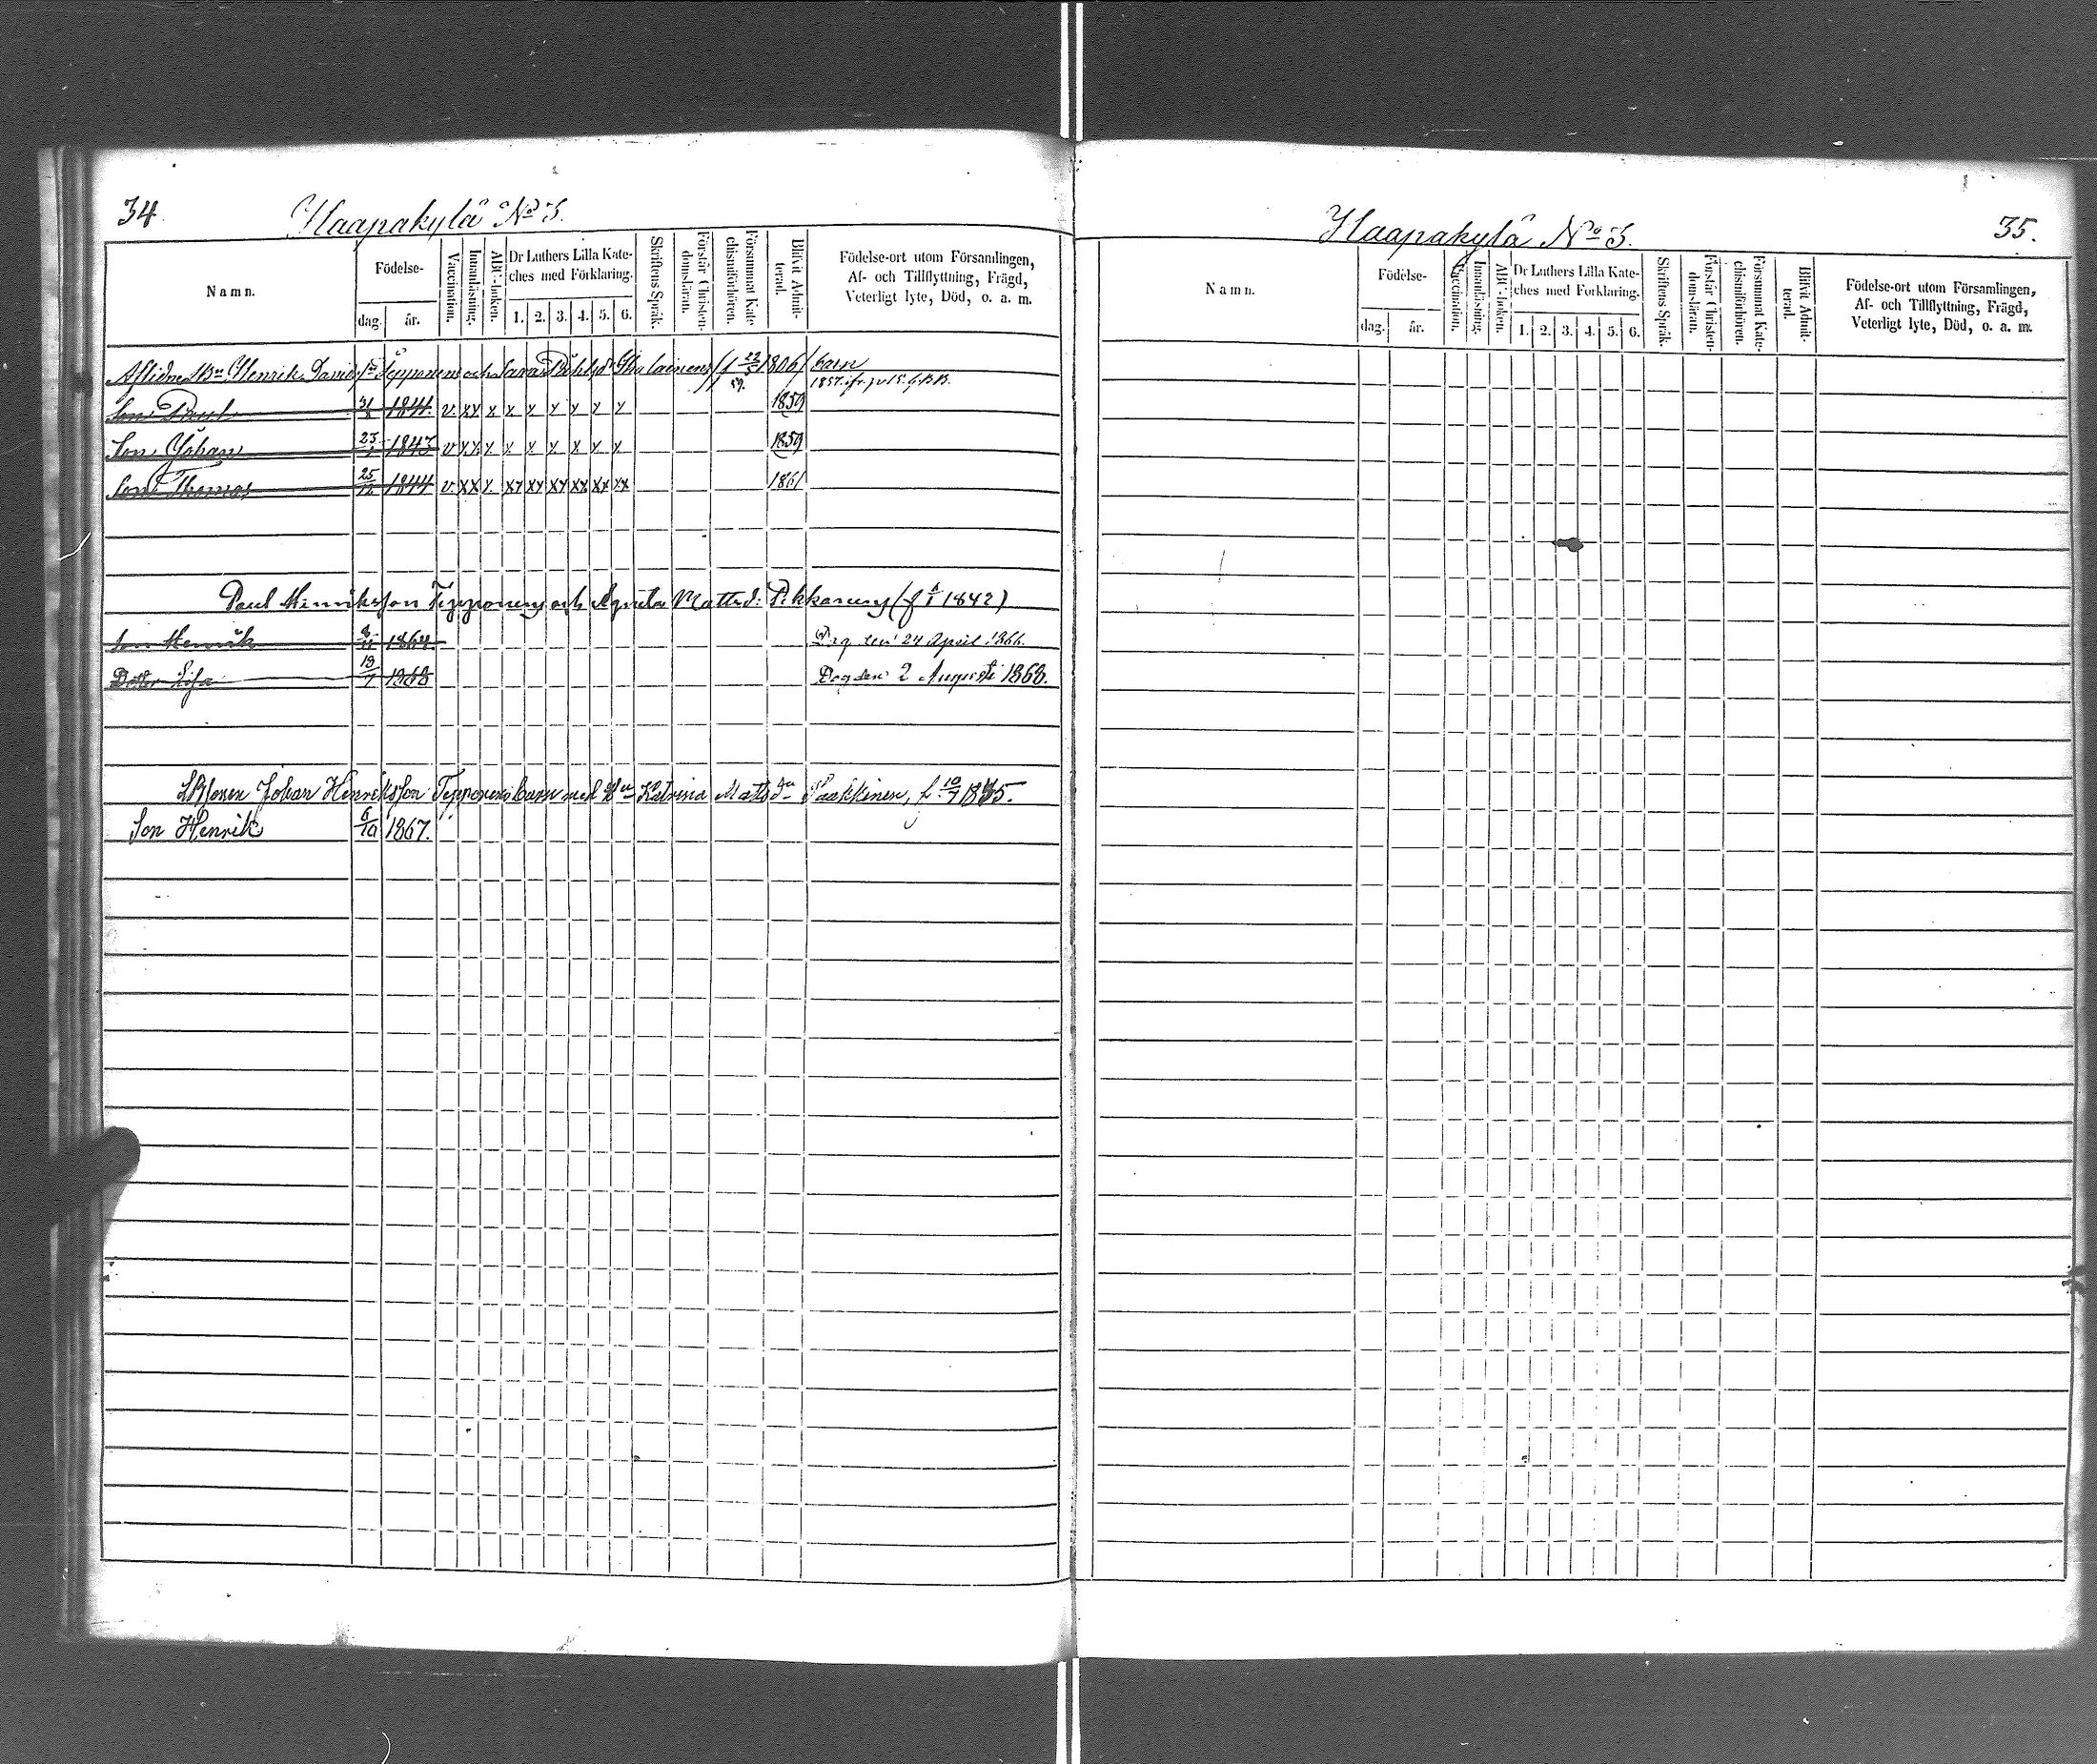 34.
Haapakylä No 3.
Namn.
Födelse-
dag.
år.
Vaccination.
Innanläsning.
ABC-boken.
Dr Luthers Lilla Kate-
ches med Förklaring.
1. 2. 3. 4. 5. 6.
Skriftens Språk.
Förstår Christen-
domsläran.
Försummat Kate-
chismiförhören.
Blifvit Admit-
terad.
Födelse-ort utom Församlingen,
Af- och Tillflyttning, Frägd,
Veterligt lyte, Död, o. a. m.
Aflidne Henrik Davids Tepponens och Sara Påhlsdr 1806 barn
Son Paul 1841. v xx x x x x x x x 1859
Son Johan 1843 v xx x x x x x x x 1859
Son Thomas 25/12 1844 v xx x xx xx xx xx xx xx 1861
Paul Henriksson Tepponens och Agneta Mattsd: Pekkanens (f 1842)
Son Henrik 1864 Dog den 24 April 1866.
Dotter Lisa 19/7 1868 Dog den 2 Augusti 1868.
Johan Henriksson Tepponens barn med Katrina Matsdr Paakkinen, f. 10/7 1845.
Son Henrik 6/10 1867.
Haapakylä No 3.
35.
Namn.
Födelse-
dag.
år.
Vaccination.
Innanläsning.
ABC-boken.
Dr Luthers Lilla Kate-
ches med Förklaring.
1. 2. 3. 4. 5. 6.
Skriftens Språk.
Förstår Christen-
domsläran.
Försummat Kate-
chismiförhören.
Blifvit Admit-
terad.
Födelse-ort utom Församlingen,
Af- och Tillflyttning, Frägd,
Veterligt lyte, Död, o. a. m.